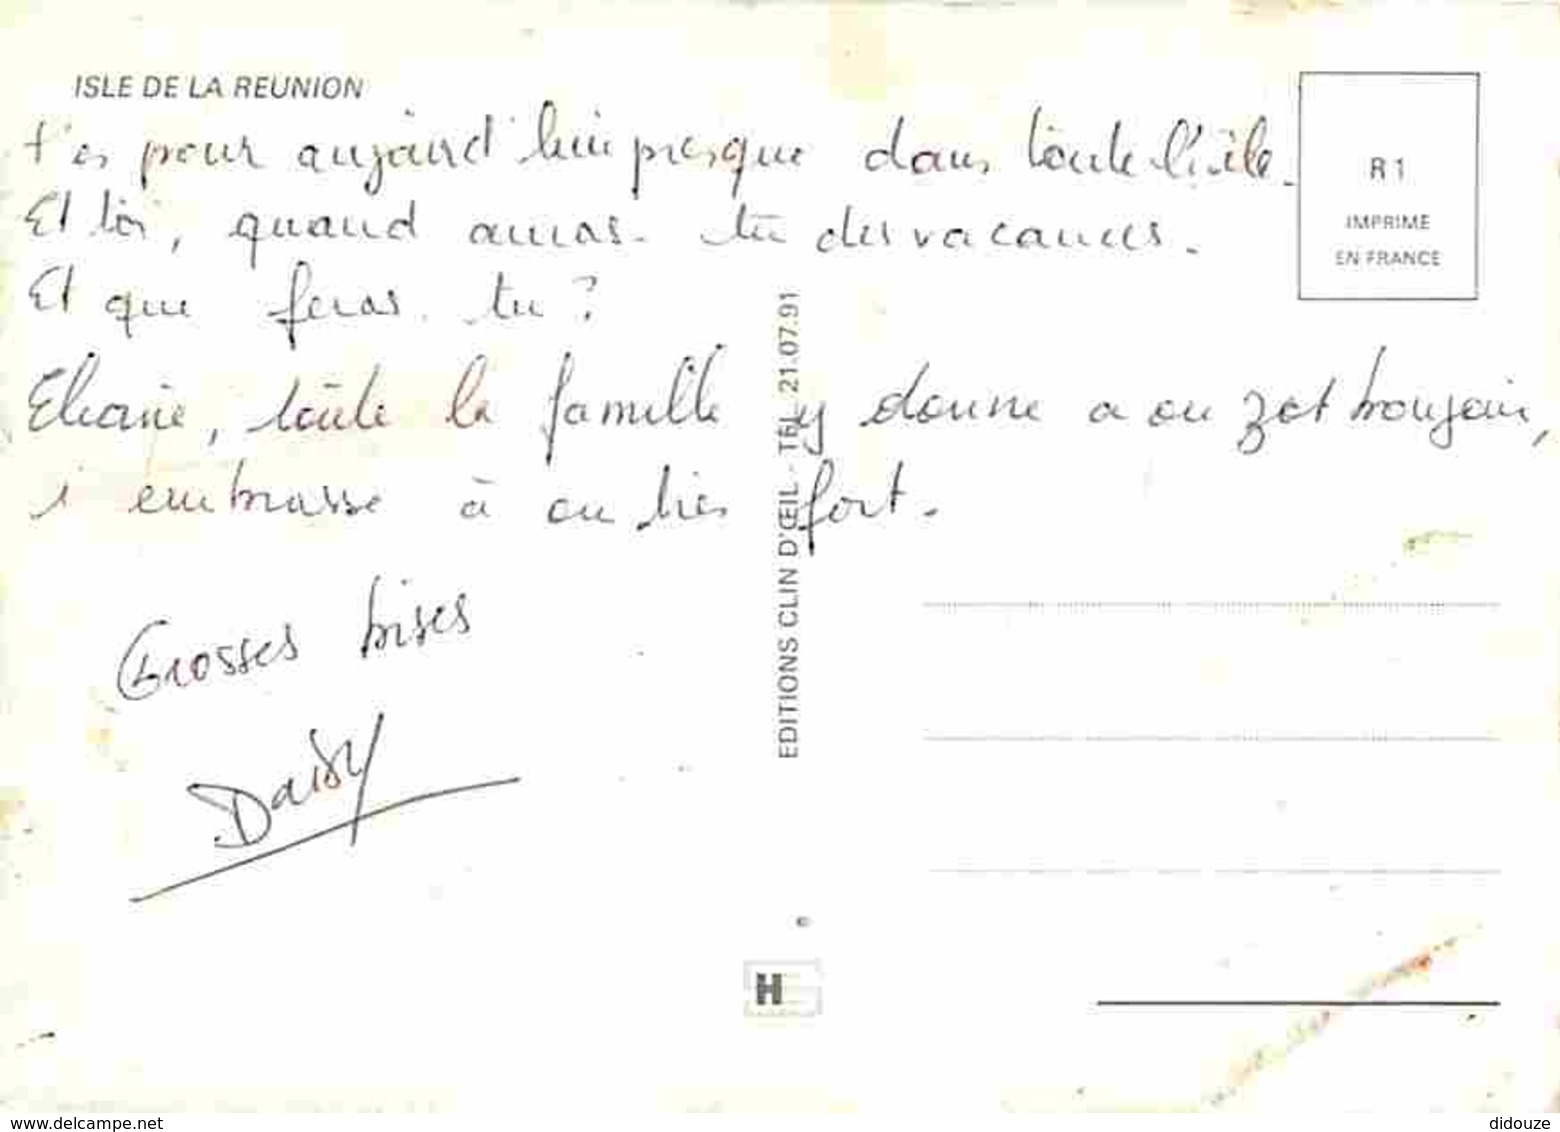 ISLE DE LA REUNION
t'es pour aujourd'hui presque dans toute l'île.
Et toi, quand auras-tu des vacances.
Et que feras-tu ?
Eliane, toute la famille y donne a ou zot bonjour,
i embrasse à ou très fort.
Grosses bises
Daisy
EDITIONS CLIN D'ŒIL - TEL. 21.07.91
R1
IMPRIME
EN FRANCE
©
H
www.delcampe.net
didouze